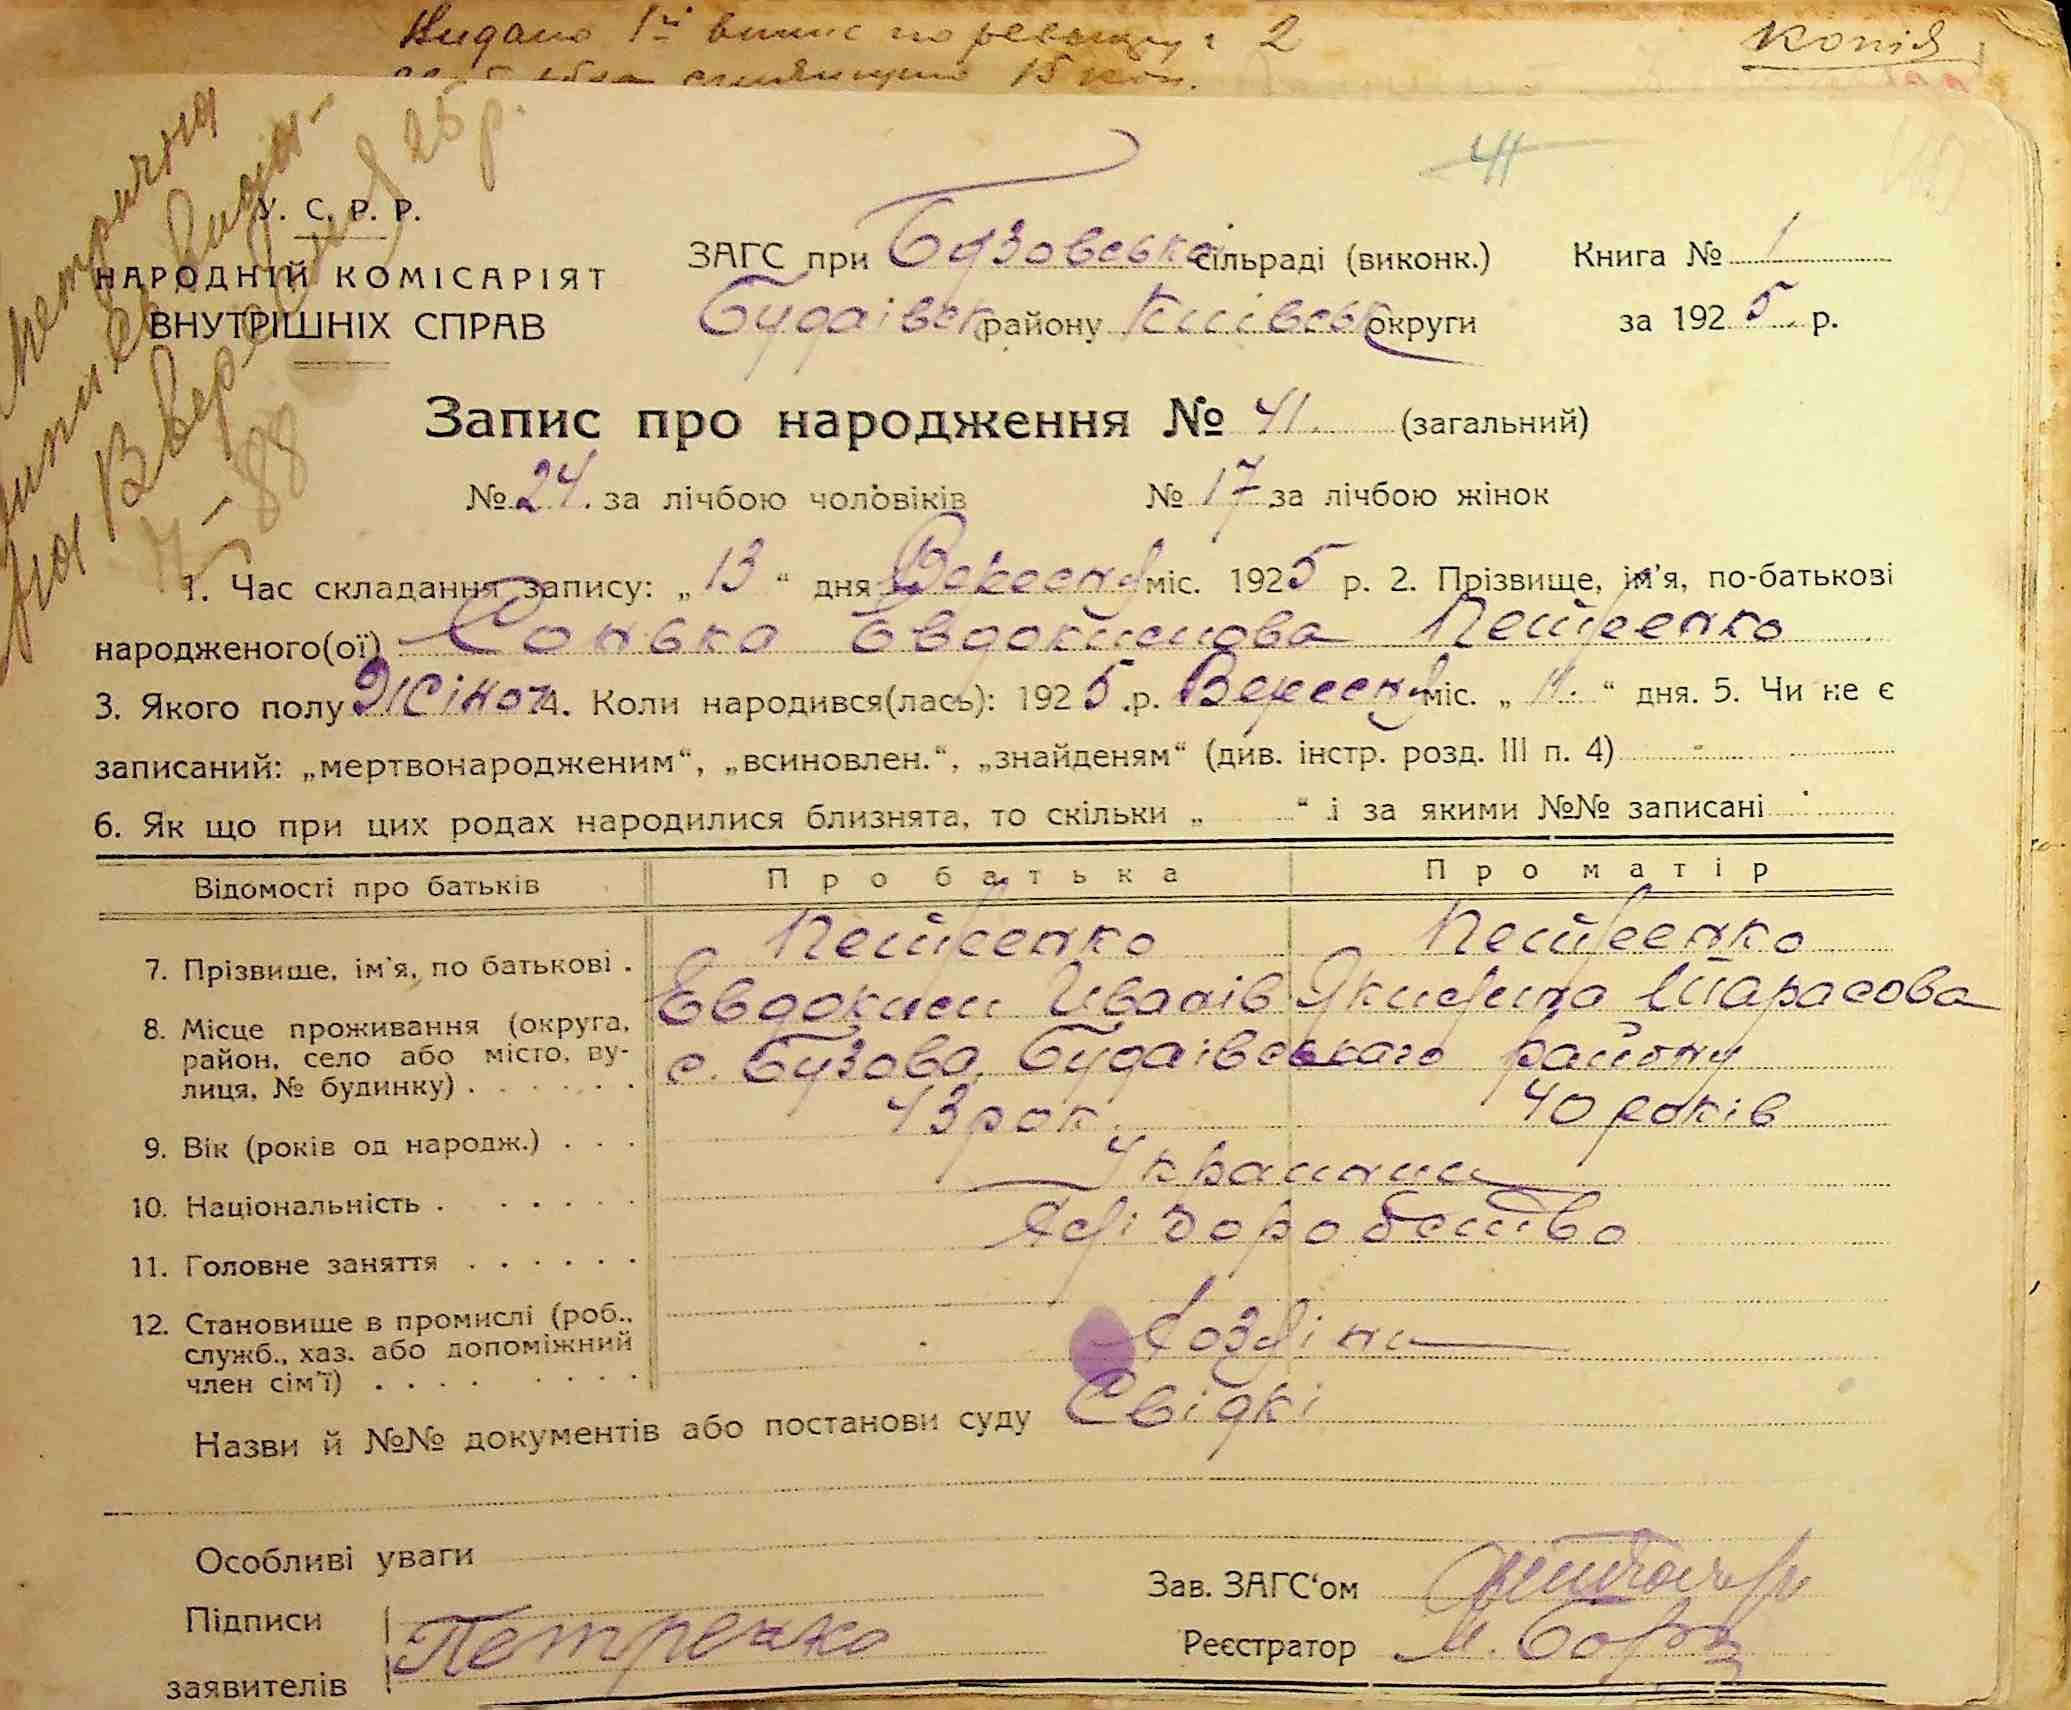 Видано 1й випис по реєстру 2
15 коп.
Копія
Метрична
Вересня 25 р.
88
41
У. С. Р. Р.
НАРОДНІЙ КОМІСАРІЯТ
ВНУТРІШНІХ СПРАВ
ЗАГС при Бузовська сільраді (виконк.)
Будаівск району Київськ округи
Книга № 1
за 1925 р.
Запис про народження № 41. (загальний)
№ 24. за лічбою чоловіків № 17 за лічбою жінок
1. Час складання запису: „ 13 “ дня Вересня міс. 1925 р. 2. Прізвище, ім'я, по-батькові
народженого(ої) Сонька Евдокимова Петренко
3. Якого полу Жіноч 4. Коли народився(лась): 1925.р. Вересня міс. „ 11. “ дня. 5. Чи не є
записаний: „мертвонародженим“, „всиновлен.“, „знайденям“ (див. інстр. розд. III п. 4) -
6. Як що при цих родах народилися близнята, то скільки „ “ і за якими №№ записані
Відомості про батьків Про батька Про матір
7. Прізвище, ім'я, по батькові . Петренко Петренко
Евдоким Иванів Якилина Тарасова
8. Місце проживання (округа, район, село або місто, вулиця, № будинку) . . . . . . с. Бузова, Будаівськаго району
9. Вік (років од народж.) . . . 43 рок. 40 років
10. Національність . . . . . . Украинци
11. Головне заняття . . . . . . Хліборобство
12. Становище в промислі (роб., служб., хаз. або допоміжний член сім'ї) . . . . . . . . Хозяіни
Назви й №№ документів або постанови суду Свідкі
Особливі уваги
Підписи
заявителів Петренко
Зав. ЗАГС'ом
Реєстратор